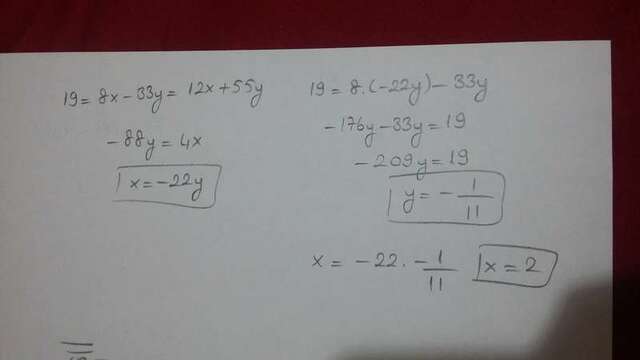 19 = 8x - 33y = 12x + 55y
- 88y = 4x
x = - 22y
19 = 8.(-22y) - 33y
- 176y - 33y = 19
- 209y = 19
y = - 1/11
x = - 22 . - 1/11
x = 2